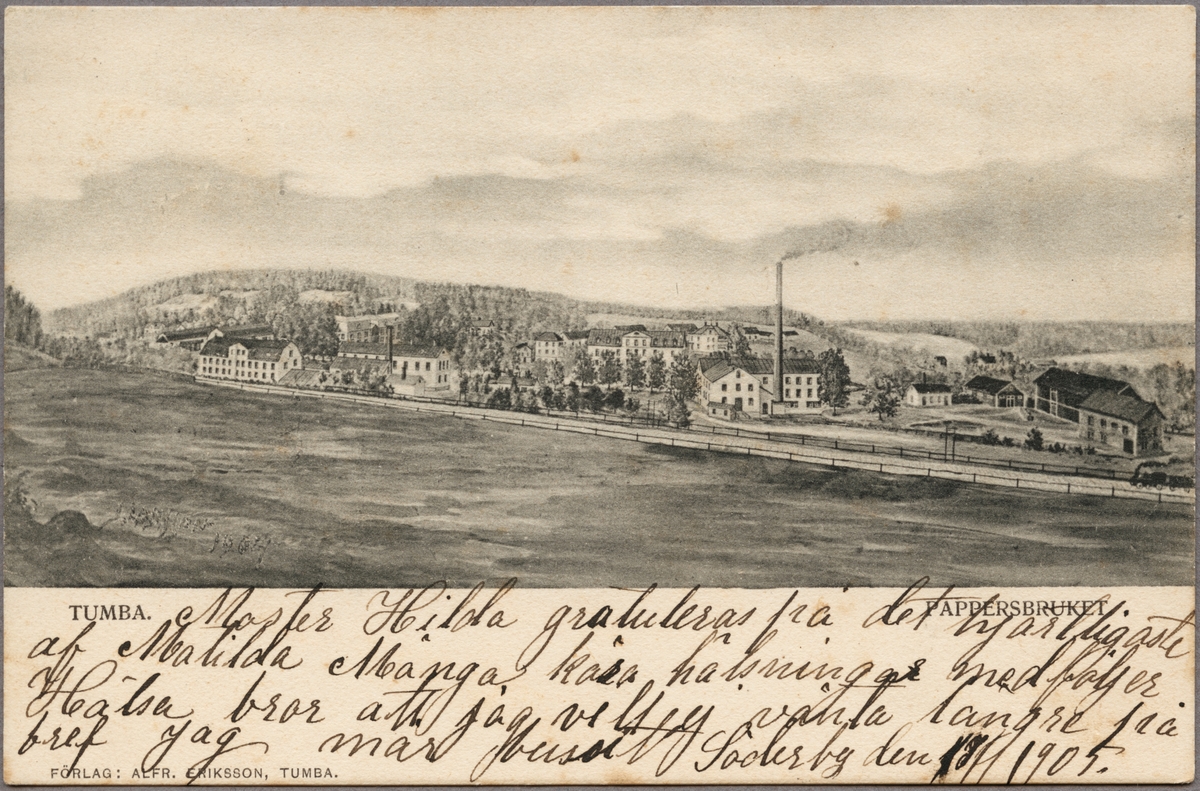 TUMBA.
PAPPERSBRUKET.
Moster Hilda gratuleras på det hjärtligaste
af Matilda Många kära hälsningar medföljer
Hälsa bror att jag vänta längre på
bref jag mår Söderby den 1905.
FÖRLAG: ALFR. ERIKSSON, TUMBA.